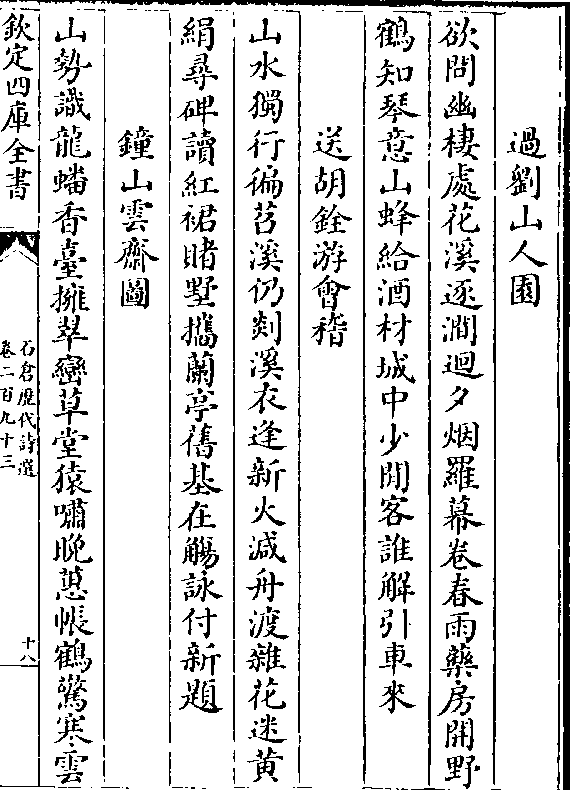 過劉山人園
欲問幽棲處花溪逐澗迴夕烟羅幕卷春雨藥房開野
鶴知琴意山蜂給酒材城中少閒客誰解引車來
送胡銓游會稽
山水獨行徧苕溪仍剡溪衣逢新火減舟渡雜花迷黄
絹尋碑讀紅裙賭墅攜蘭亭舊基在觴詠付新題
鐘山雲齋圖
山勢識龍蟠香臺擁翠巒草堂猿嘯晚蕙帳鶴驚寒雲
欽定四庫全書
石倉歷代詩選
卷二百九十三
十八